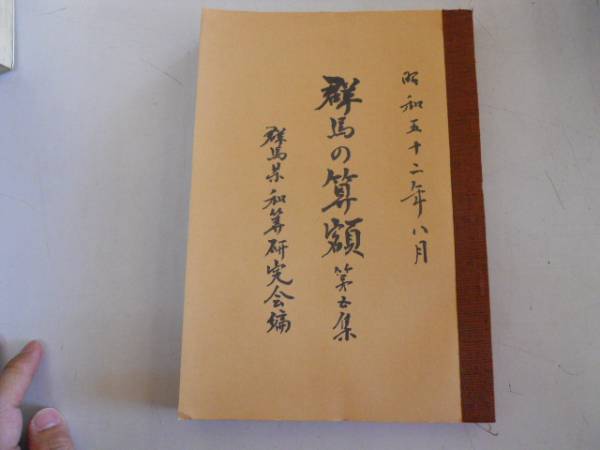 昭和五十二年八月
群馬の算額 第五集
群馬県和算研究会編